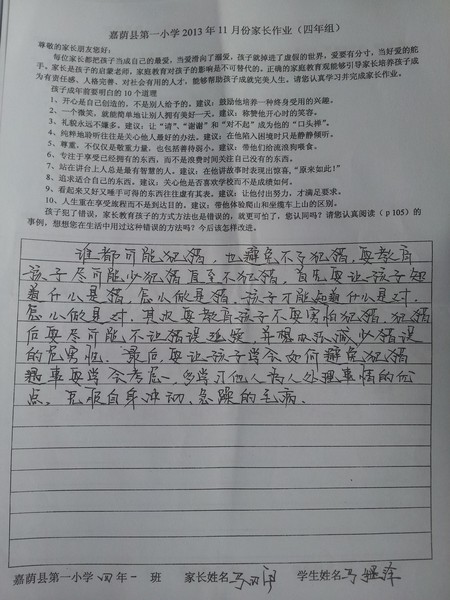 嘉荫县第一小学2013年11月份家长作业（四年组）
尊敬的家长朋友您好：
每位家长都把孩子当成自己的最爱，当爱滑向了溺爱，孩子就掉进了虚假的世界，爱要有分寸，当好爱的舵
手，家长是孩子的启蒙老师，家庭教育对孩子的影响是不可替代的。正确的家庭教育观能够引导家长培养孩子成
为有责任感、人格完善、对社会有用的人才，能够帮助孩子成就完美人生。请您认真学习并完成家长作业。
孩子成年前要明白的10个道理
1、开心是自己创造的，不是别人给予的。建议：鼓励他培养一种终身受用的兴趣。
2、一个微笑，就能简单地让别人拥有美好一天。建议：称赞他开心时的笑容。
3、礼貌永远不嫌多。建议：让“请”、“谢谢”和“对不起”成为他的“口头禅”。
4、纯粹地聆听往往是关心他人最好的办法。建议：在他陷入困境时只是静静倾听。
5、尊重，不仅仅是敬重力量，也包括善待弱小。建议：带他们给流浪狗喂食。
6、专注于享受已经拥有的东西，而不是浪费时间关注自己没有的东西。
7、站在讲台上人总是最有智慧的人。建议：在他讲故事时表现出惊喜，“原来如此！”
8、追求适合自己的东西。建议：关心他是否喜欢学校而不是成绩如何。
9、看起来又好又唾手可得的东西往往虚有其表。建议：让他付出努力，才满足要求。
10、人生重在享受旅程而不是到达目的。建议：带他体验爬山和坐缆车上山的区别。
孩子犯了错误，家长教育孩子的方式方法也是错误的，就更可怕了，您认同吗？请您认真阅读（p105）的
事例，想想您在生活中用过这种错误的方法吗？今后该怎样改进。
谁都可能犯错，也避免不了犯错，要教育
孩子尽可能少犯错直至不犯错，首先要让孩子知
道什么是错，怎么做是错，孩子才能知道什么是对，
怎么做是对。其次要教育孩子不要害怕犯错，犯错
后要尽可能不让错误延续，并想办法减少错误
的危害性。最后要让孩子学会如何避免犯错
遇事要学会考虑，多学习他人为人处理事情的优
点。克服自身冲动、急躁的毛病。
嘉荫县第一小学四年一班 家长姓名 学生姓名马